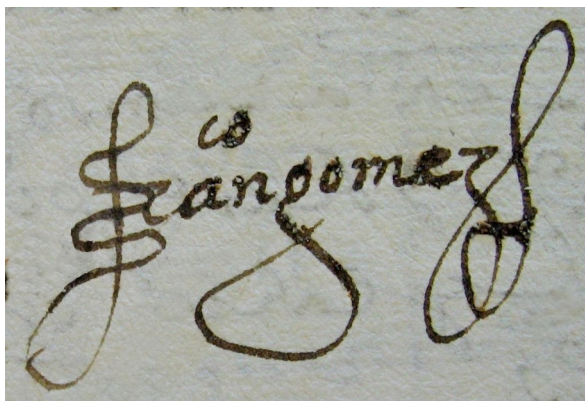 franco gomez